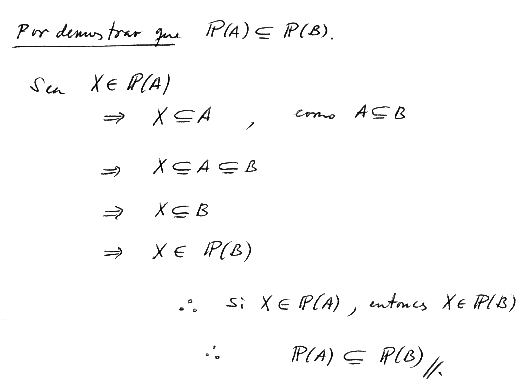 Por demostrar que ℙ(A) ⊆ ℙ(B).
Sea X ∈ ℙ(A)
⇒ X ⊆ A , como A ⊆ B
⇒ X ⊆ A ⊆ B
⇒ X ⊆ B
⇒ X ∈ ℙ(B)
∴ si X ∈ ℙ(A), entonces X ∈ ℙ(B)
∴ ℙ(A) ⊆ ℙ(B) //.